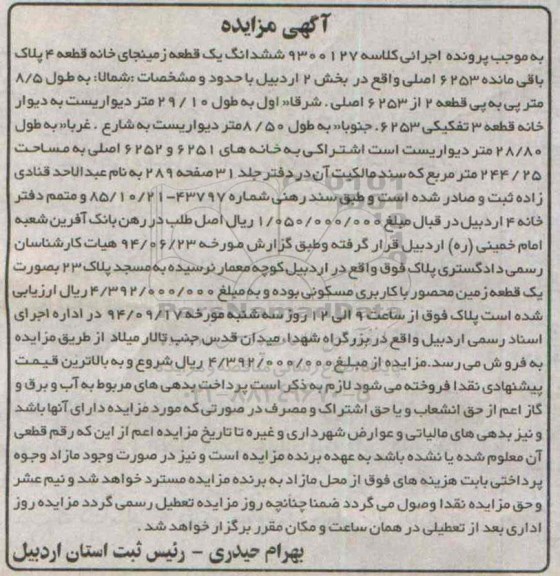 آگهی مزایده
به موجب پرونده اجرائی کلاسه ۹۳۰۰۱۲۷ ششدانگ یک قطعه زمینجای خانه قطعه ۴ پلاک
باقی مانده ۶۲۵۳ اصلی واقع در بخش ۲ اردبیل با حدود و مشخصات :شمالا: به طول ۸/۵
متر پی به پی قطعه ۲ از ۶۲۵۳ اصلی . شرقا« اول به طول ۲۹/۱۰ متر دیواریست به دیوار
خانه قطعه ۳ تفکیکی ۶۲۵۳. جنوبا« به طول ۸/۵۰متر دیواریست به شارع . غربا« به طول
۲۸/۸۰ متر دیواریست است اشتراکی به خانه های ۶۲۵۱ و ۶۲۵۲ اصلی به مساحت
۲۴۴/۲۵ متر مربع که سند مالکیت آن در دفتر جلد ۳۱ صفحه ۲۸۹ به نام عبدالاحد قنادی
زاده ثبت و صادر شده است و طبق سند رهنی شماره ۴۳۷۹۷-۸۵/۱۰/۲۱ و متمم دفتر
خانه ۴ اردبیل در قبال مبلغ ۱/۰۵۰/۰۰۰/۰۰۰ ریال اصل طلب در رهن بانک آفرین شعبه
امام خمینی (ره) اردبیل قرار گرفته وطبق گزارش مورخه ۹۴/۰۶/۲۳ هیات کارشناسان
رسمی دادگستری پلاک فوق واقع در اردبیل کوچه معمار نرسیده به مسجد پلاک ۲۳ بصورت
یک قطعه زمین محصور با کاربری مسکونی بوده و به مبلغ ۴/۳۹۲/۰۰۰/۰۰۰ ریال ارزیابی
شده است پلاک فوق از ساعت ۹ الی ۱۲ روز سه شنبه مورخه ۹۴/۰۹/۱۷ در اداره اجرای
اسناد رسمی اردبیل واقع در بزرگراه شهدا، میدان قدس جنب تالار میلاد از طریق مزایده
به فروش می رسد.مزایده از مبلغ ۴/۳۹۲/۰۰۰/۰۰۰ ریال شروع و به بالاترین قیمت
پیشنهادی نقدا فروخته می شود لازم به ذکر است پرداخت بدهی های مربوط به آب و برق و
گاز اعم از حق انشعاب و یا حق اشتراک و مصرف در صورتی که مورد مزایده دارای آنها باشد
و نیز بدهی های مالیاتی و عوارض شهرداری و غیره تا تاریخ مزایده اعم از این که رقم قطعی
آن معلوم شده یا نشده باشد به عهده برنده مزایده است و نیز در صورت وجود مازاد وجوه
پرداختی بابت هزینه های فوق از محل مازاد به برنده مزایده مسترد خواهد شد و نیم عشر
و حق مزایده نقدا وصول می گردد ضمنا چنانچه روز مزایده تعطیل رسمی گردد مزایده روز
اداری بعد از تعطیلی در همان ساعت و مکان مقرر برگزار خواهد شد .
بهرام حیدری - رئیس ثبت استان اردبیل